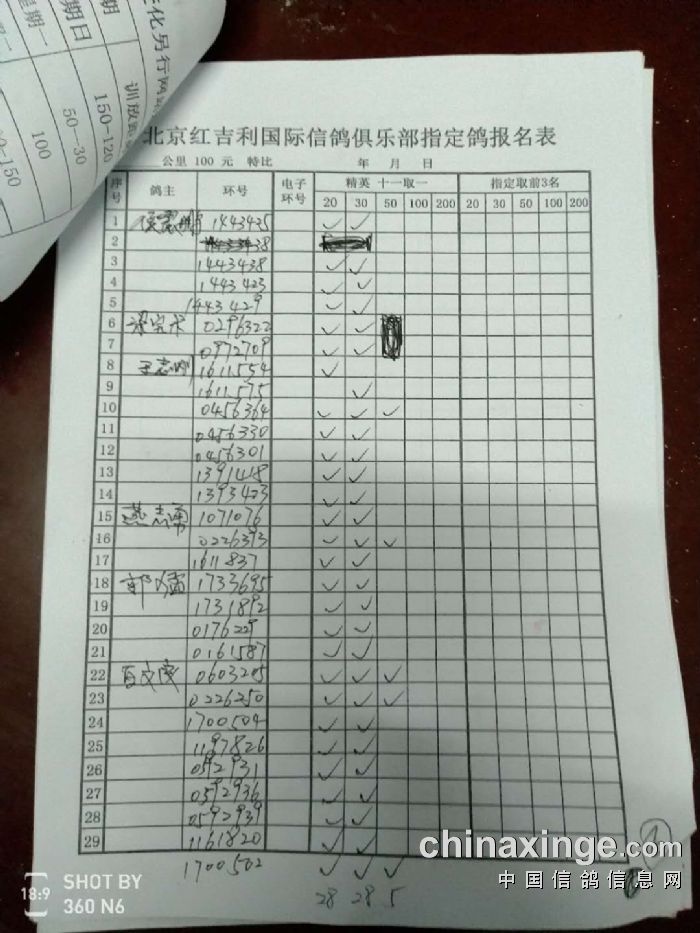 训放
期
日期
星期一
150-120
50-30
100
北京红吉利国际信鸽俱乐部指定鸽报名表
公里 100 元 特比 年 月 日
序号 鸽主 环号 电子环号 精英 十一取一 指定取前3名
20 30 50 100 200 20 30 50 100 200
1 1443435 ✓ ✓
2
3 1443438 ✓ ✓
4 1443423 ✓ ✓
5 1443429 ✓ ✓
6 0296322 ✓ ✓
7 0972709 ✓ ✓
8 王志刚 1611554 ✓
9 1611575 ✓
10 0456364 ✓ ✓ ✓
11 0456330 ✓ ✓
12 0456301 ✓ ✓
13 1391418 ✓ ✓
14 1393423 ✓ ✓
15 燕志勇 1071076 ✓ ✓
16 0226393 ✓ ✓ ✓
17 1611837 ✓ ✓
18 1733695 ✓ ✓
19 1731892 ✓ ✓
20 0176229 ✓ ✓
21 0161587 ✓ ✓
22 0603205 ✓ ✓ ✓
23 0226250 ✓ ✓ ✓
24 1700504 ✓ ✓
25 1197826 ✓ ✓
26 0592931 ✓ ✓
27 0592936 ✓ ✓
28 0592939 ✓ ✓
29 1161820 ✓ ✓
1700502 ✓ ✓ ✓
28 28 5
chinaxinge.com
中国信鸽信息网
18:9 SHOT BY
360 N6